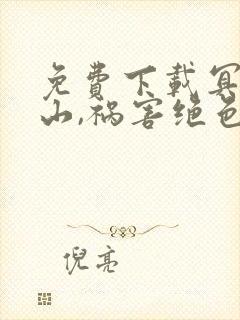 免費下載冥
山,祸害绝色
倪亮